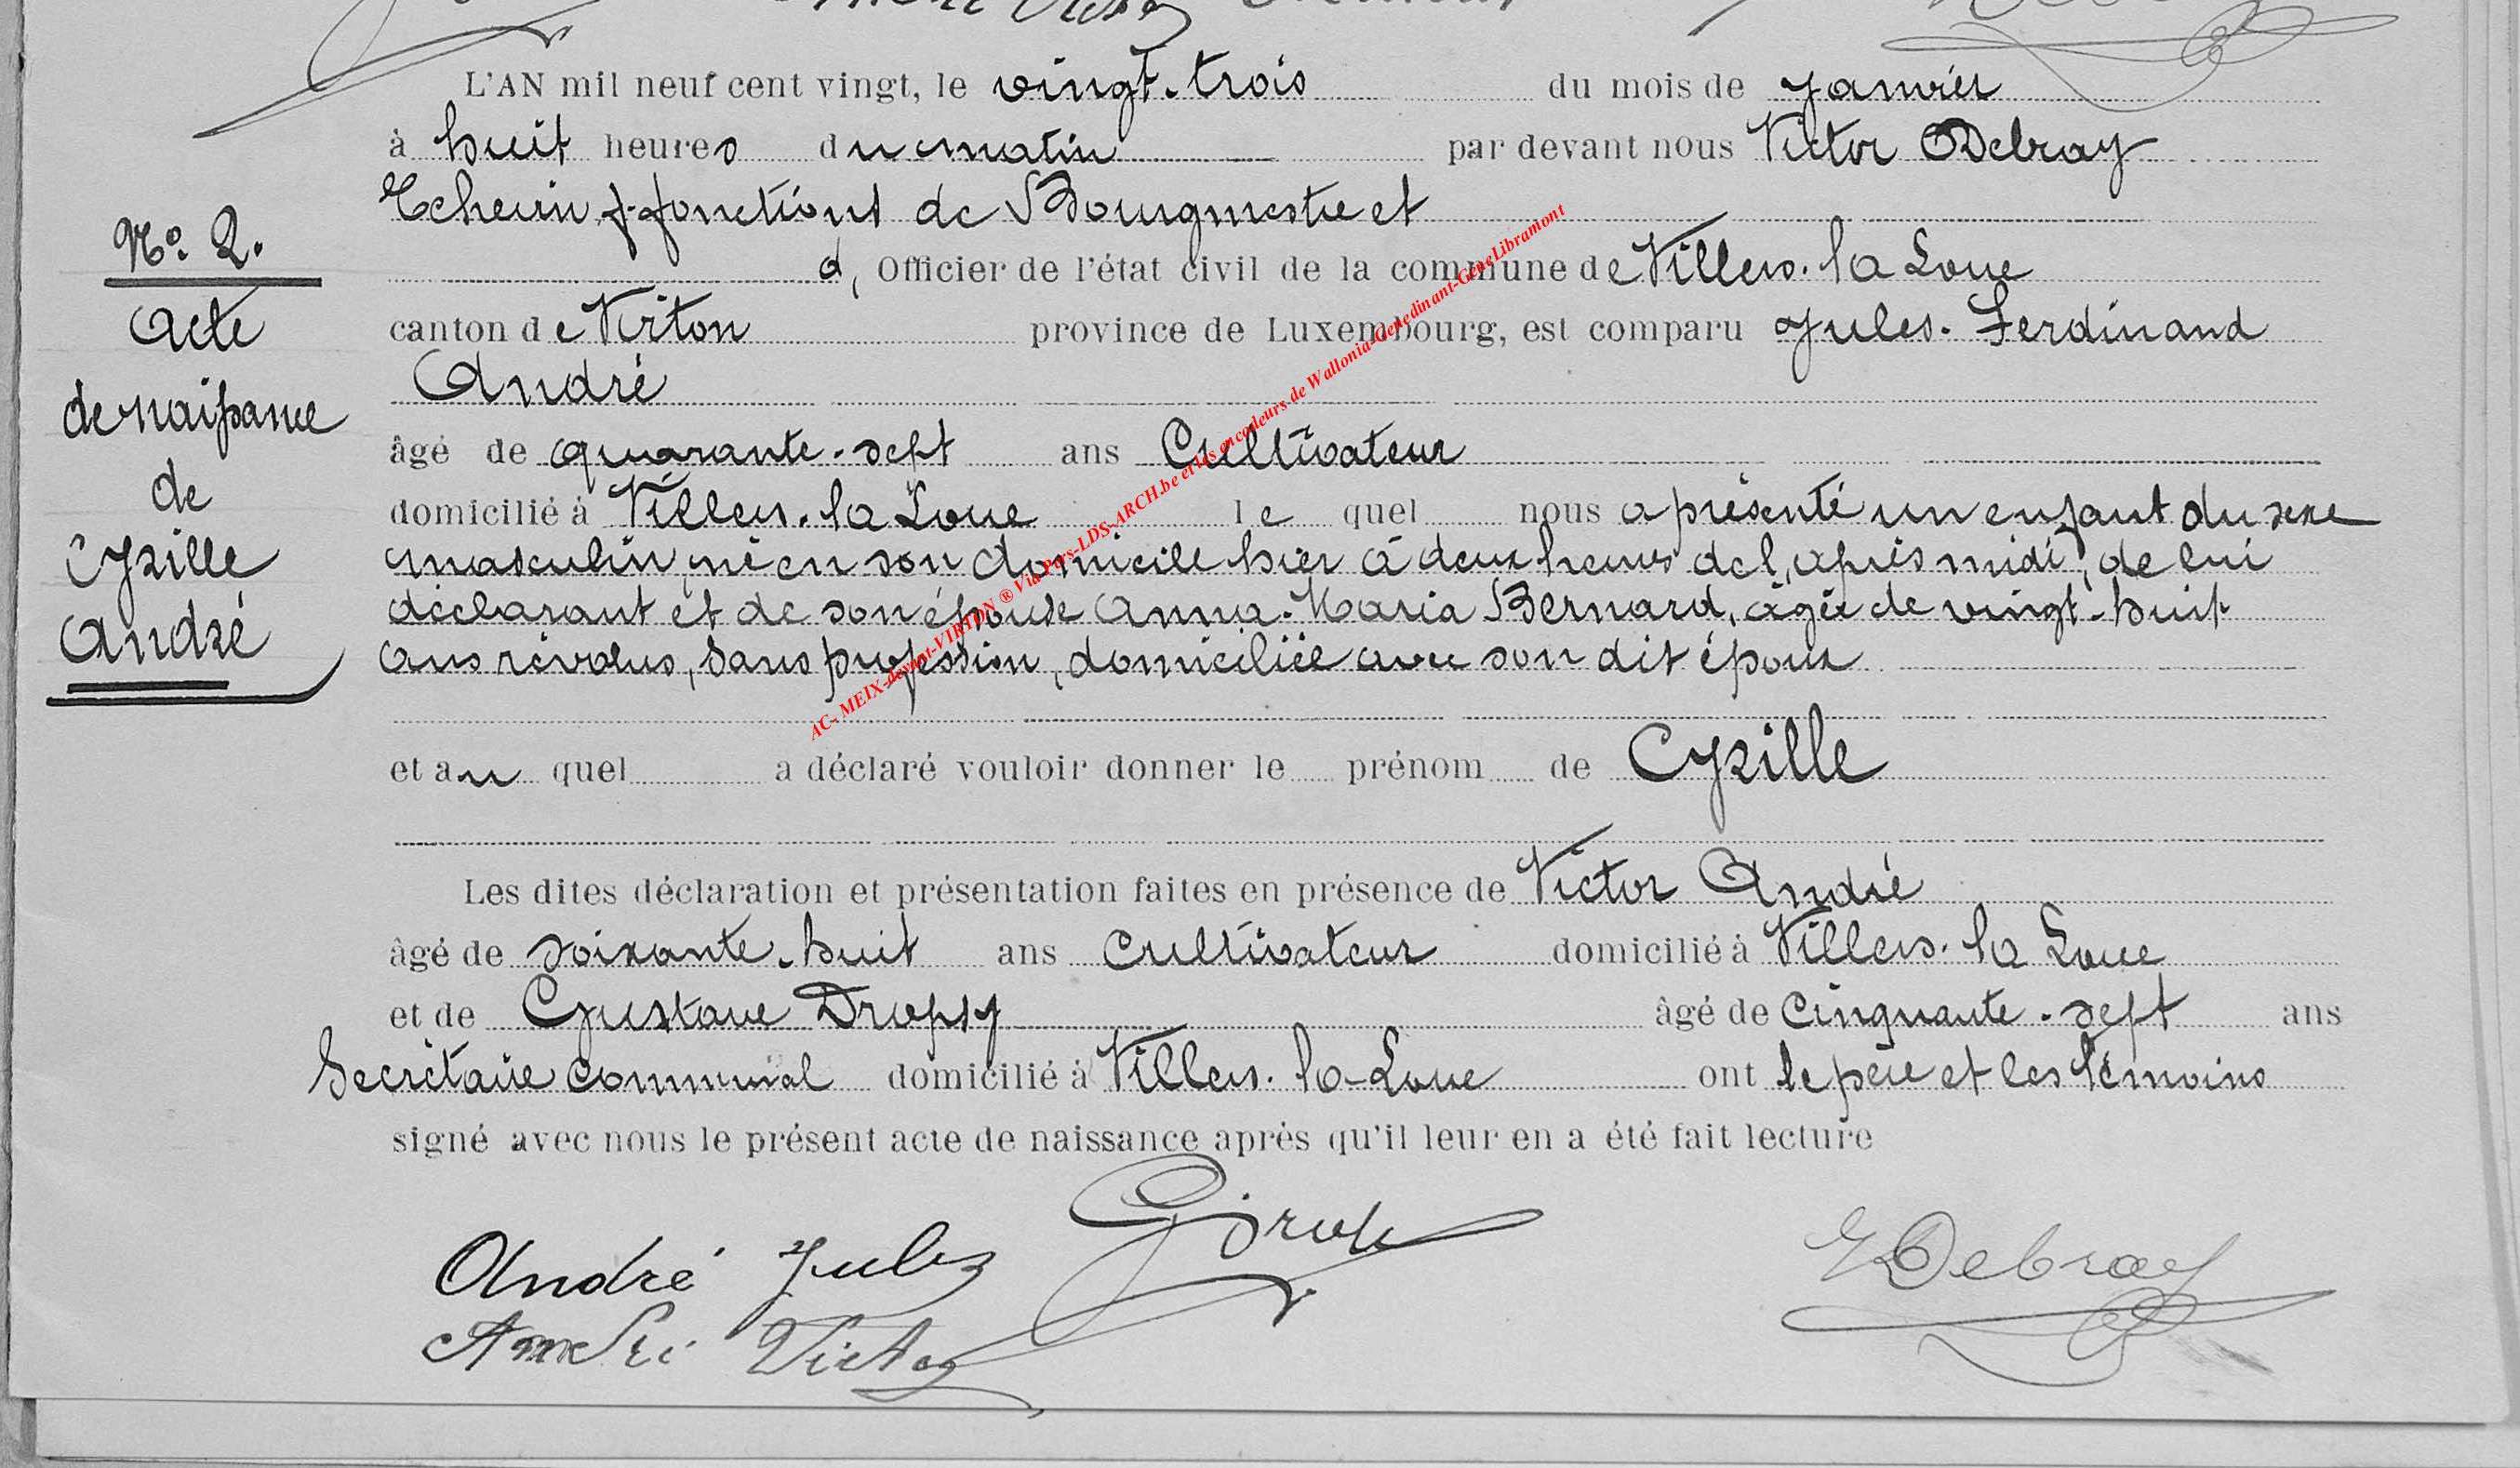 L'AN mil neuf cent vingt, le vingt-trois du mois de Janvier
à huit heures du matin par devant nous Victor Debray
Echevin f. fonctions de Bourgmestre et
d, Officier de l'état civil de la commune de Villers-la Loue
canton de Virton province de Luxembourg, est comparu Jules-Ferdinand
André
âgé de quarante-sept ans Cultivateur
domicilié à Villers-la Loue le quel nous a présenté un enfant du sexe
masculin, né en son domicile hier à deux heures de l'après midi, de lui
déclarant et de son épouse Anna-Maria Bernard, âgée de vingt-huit
ans révolus, sans profession, domiciliée avec son dit époux
et au quel a déclaré vouloir donner le prénom de Cyrille
Les dites déclaration et présentation faites en présence de Victor André
âgé de soixante-huit ans Cultivateur domicilié à Villers-la Loue
et de Gustave Dropsy âgé de cinquante-sept ans
Secrétaire communal domicilié à Villers-la-Loue ont le père et les témoins
signé avec nous le présent acte de naissance après qu'il leur en a été fait lecture
André Jules
André Victor
VDebray
No. 2.
Acte
de naissance
de
Cyrille
André
AC- MEIX-devant-VIRTON ® Via Pars-LDS-ARCH.be et les encodeurs de Wallonia-Genedinant-GeneLibramont